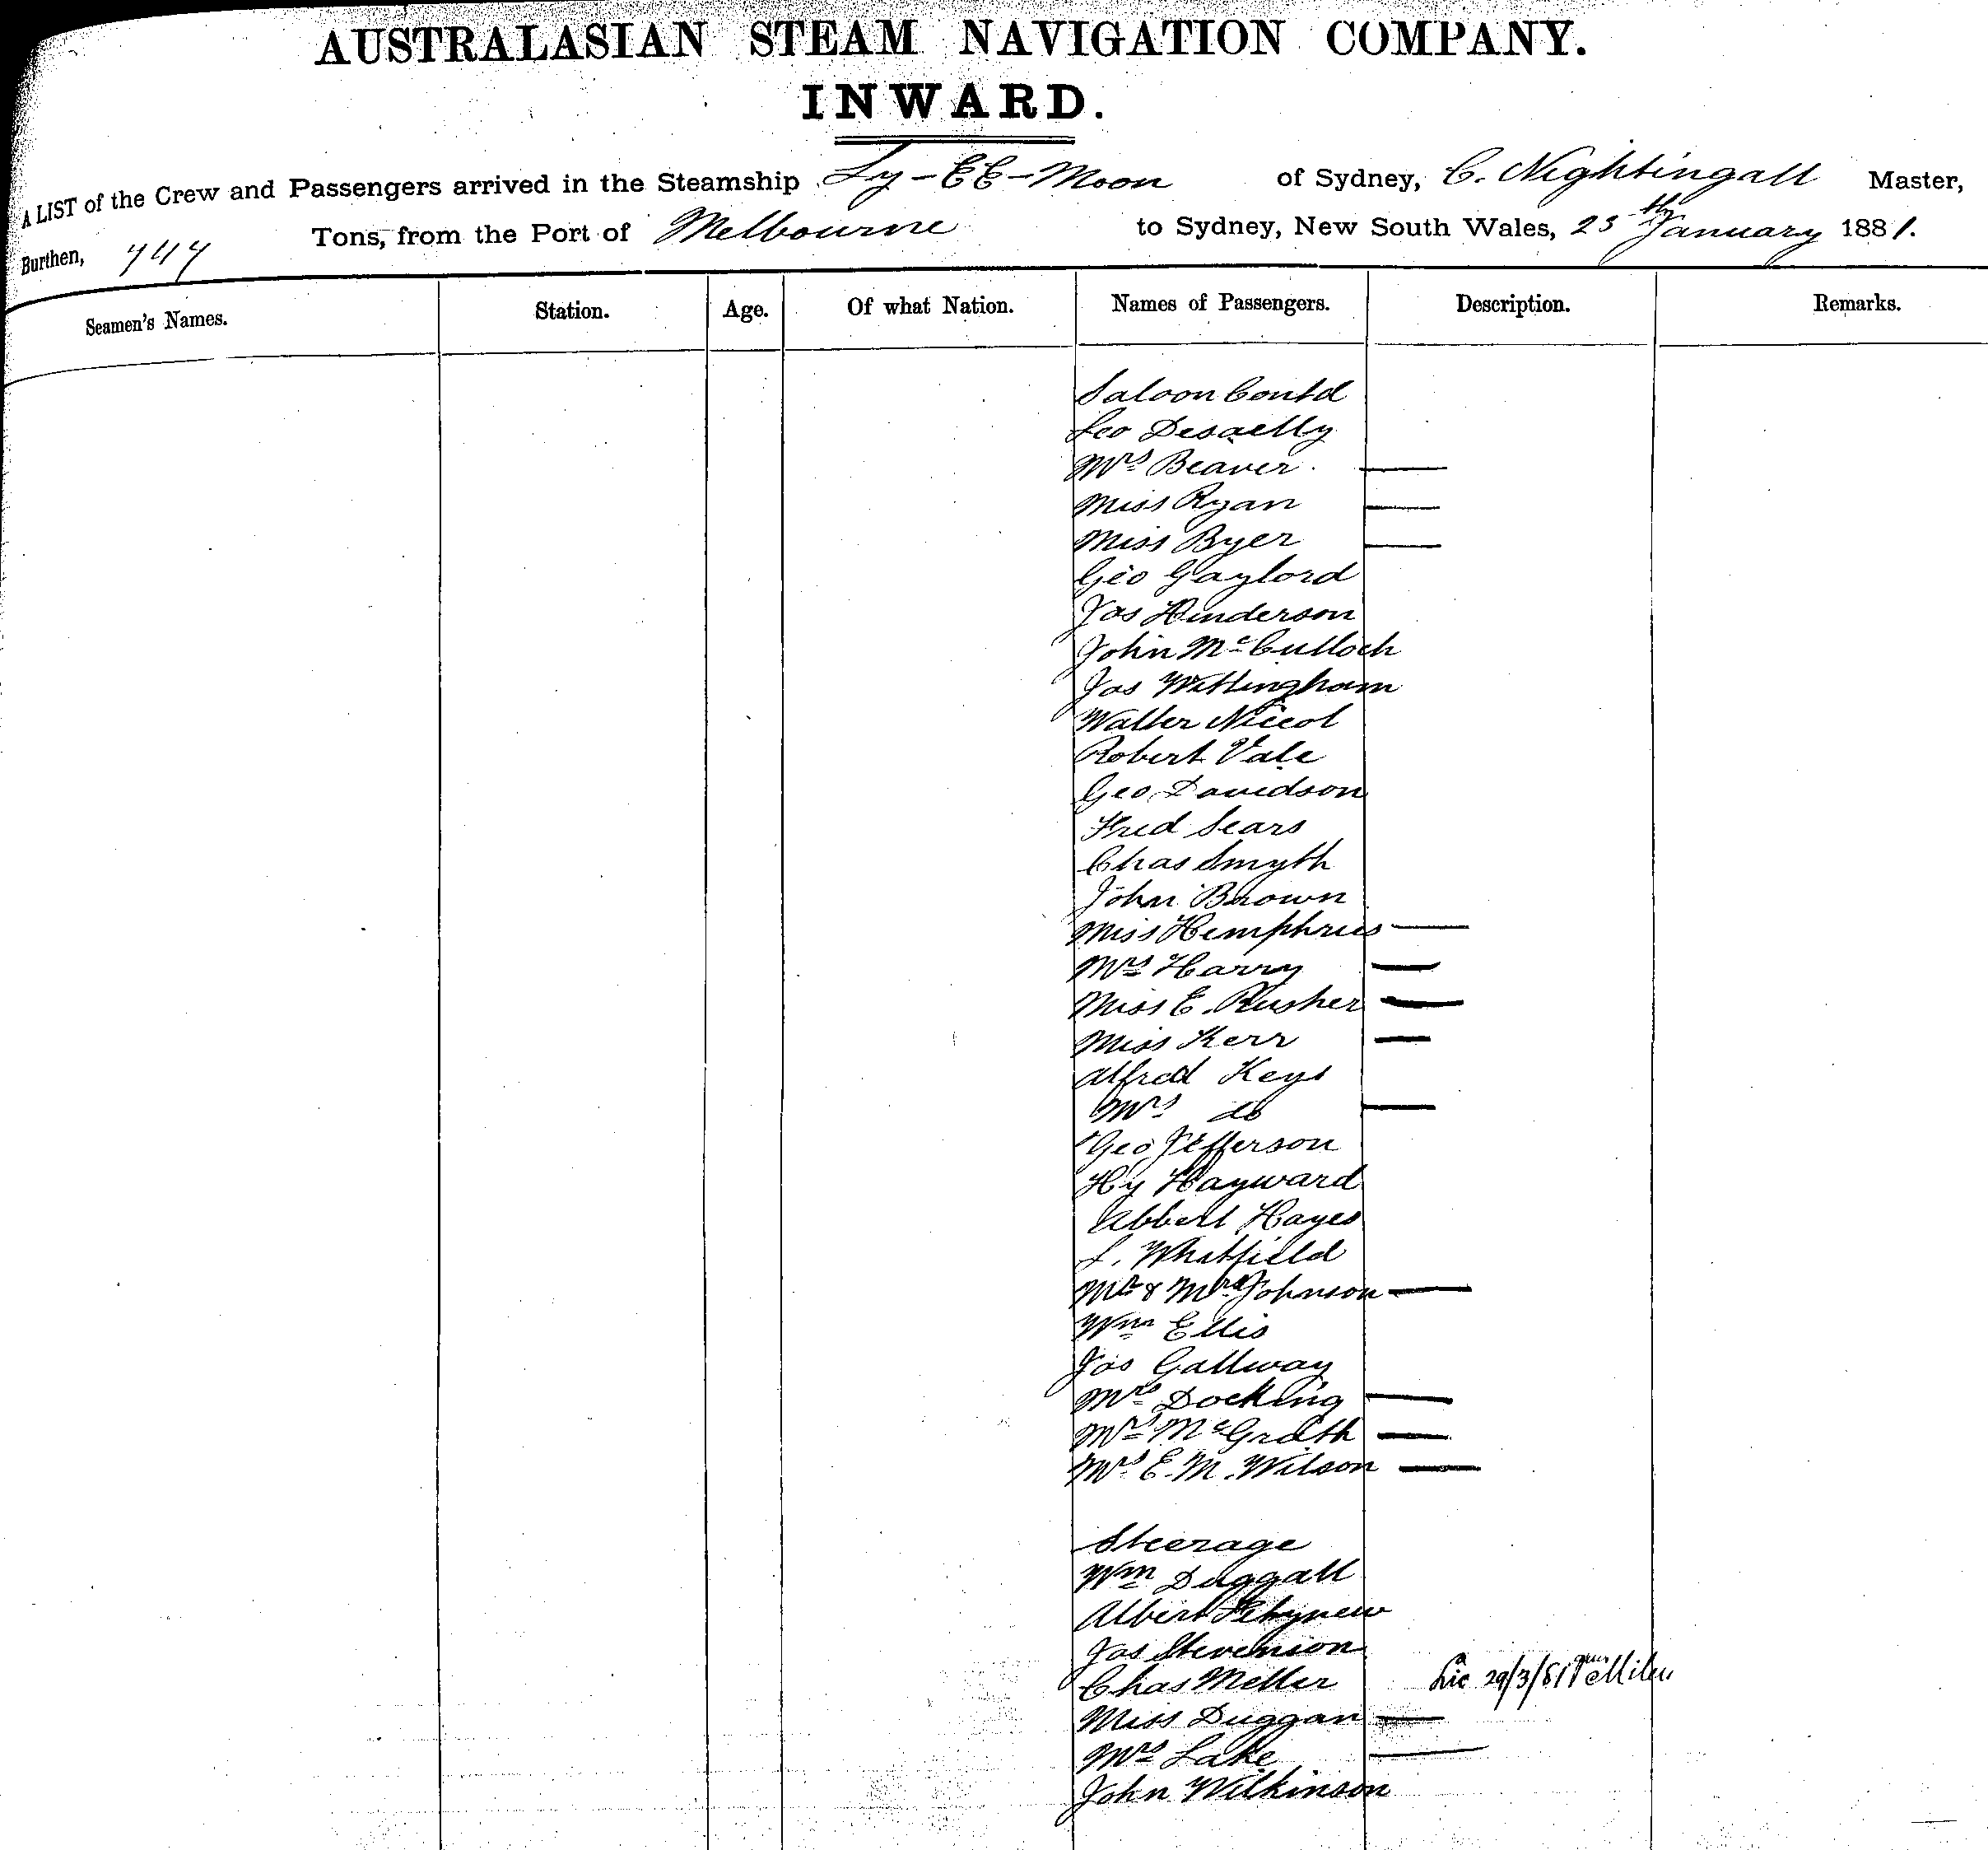 AUSTRALASIAN STEAM NAVIGATION COMPANY.
INWARD.
A LIST of the Crew and Passengers arrived in the Steamship Ly-EE-Moon of Sydney, C. Nightingall Master,
Burthen, 747 Tons, from the Port of Melbourne to Sydney, New South Wales, 25th January 1881.
Seamen's Names. Station. Age. Of what Nation. Names of Passengers. Description. Remarks.
Saloon Contd
Leo Desaelly
Mrs Beaver
Miss Ryan
Miss Byer
Geo Gaylord
Jas Henderson
John McCulloch
Jas Wittingham
Walter Niccol
Robert Vale
Geo Davidson
Fred Sears
Chas Smyth
John Brown
Miss Hemphries
Mrs Harry
Miss E. Rusher
Miss Kerr
Alfred Keys
Mrs do
Geo Jefferson
Hy Hayward
Abbert Hayes
L. Whitfield
Mr & Mrs Johnson
Wm Ellis
Jas Gallway
Mrs Docking
Mrs McGrath
Mrs E. M. Wilson
Steerage
Wm Duggall
Albert
Jas Stevenson
Chas Meller 29/3/81
Miss Duggan
Mrs Lake
John Wilkinson